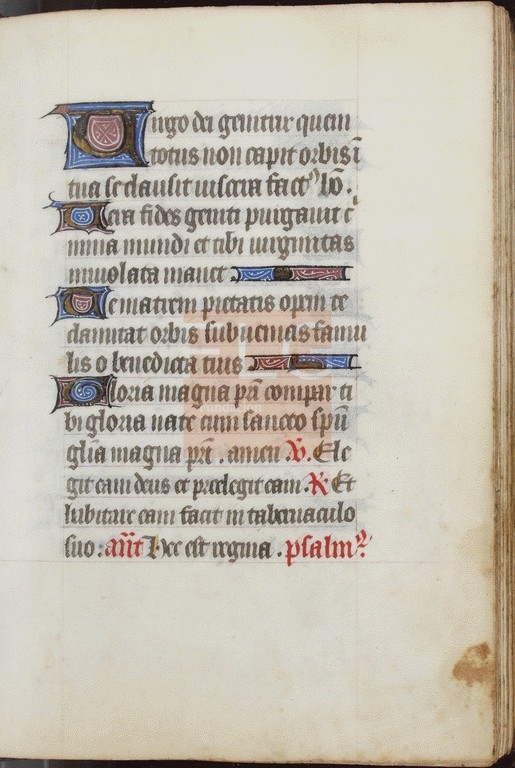 Uirgo dei genitrix quem
totus non capit orbis ī
tua se clausit uiscera fact9 hō.
Uera fides geniti purgauit c̄
mina mundi et tibi uirginitas
inuiolata manet
Te matrem pietatis opem te
clamitat orbis subuenias famu
lis o benedicta tuis
Gloria magna pr̄i compar ti
bi gloria nate cum sancto spū
gl̄ia magna pr̄i . amen . V̄. Ele
git eam deus et preelegit eam . R̄ Et
habitare eam facit in tabernaculo
suo . an̄t Hec est regina . psalm9